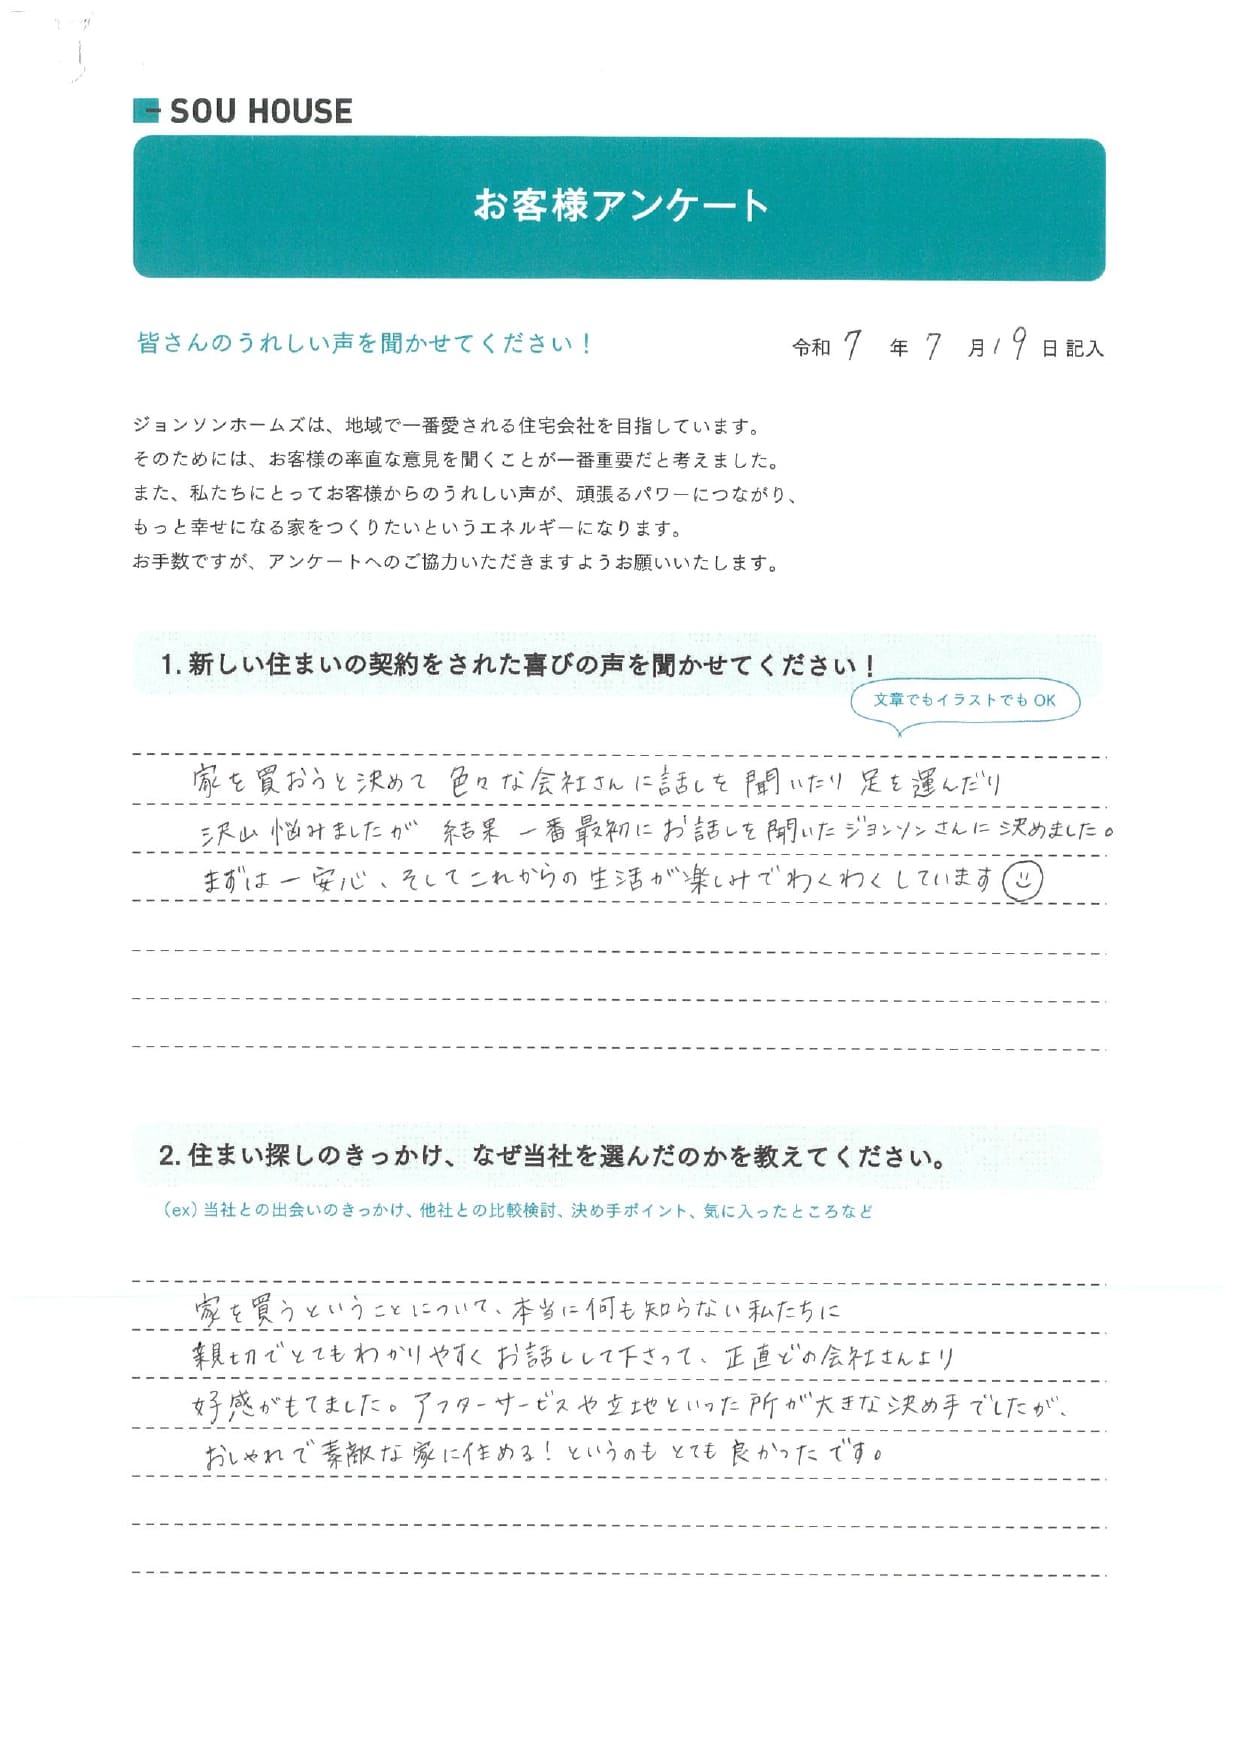 SOU HOUSE
お客様アンケート
皆さんのうれしい声を聞かせてください！
令和 7 年 7 月 19 日 記入
ジョンソンホームズは、地域で一番愛される住宅会社を目指しています。
そのためには、お客様の率直な意見を聞くことが一番重要だと考えました。
また、私たちにとってお客様からのうれしい声が、頑張るパワーにつながり、
もっと幸せになる家をつくりたいというエネルギーになります。
お手数ですが、アンケートへのご協力いただきますようお願いいたします。
1. 新しい住まいの契約をされた喜びの声を聞かせてください！
文章でもイラストでも OK
家を買おうと決めて 色々な会社さんに話しを聞いたり 足を運んだり
沢山 悩みましたが 結果 一番最初にお話しを聞いたジョンソンさんに決めました。
まずは一安心、そしてこれからの生活が楽しみでわくわくしています
2. 住まい探しのきっかけ、なぜ当社を選んだのかを教えてください。
（ex）当社との出会いのきっかけ、他社との比較検討、決め手ポイント、気に入ったところなど
家を買うということについて、本当に何も知らない私たちに
親切でとてもわかりやすくお話しして下さって、正直どの会社さんより
好感がもてました。アフターサービスや立地といった所が大きな決め手でしたが、
おしゃれで素敵な家に住める！というのもとても良かったです。